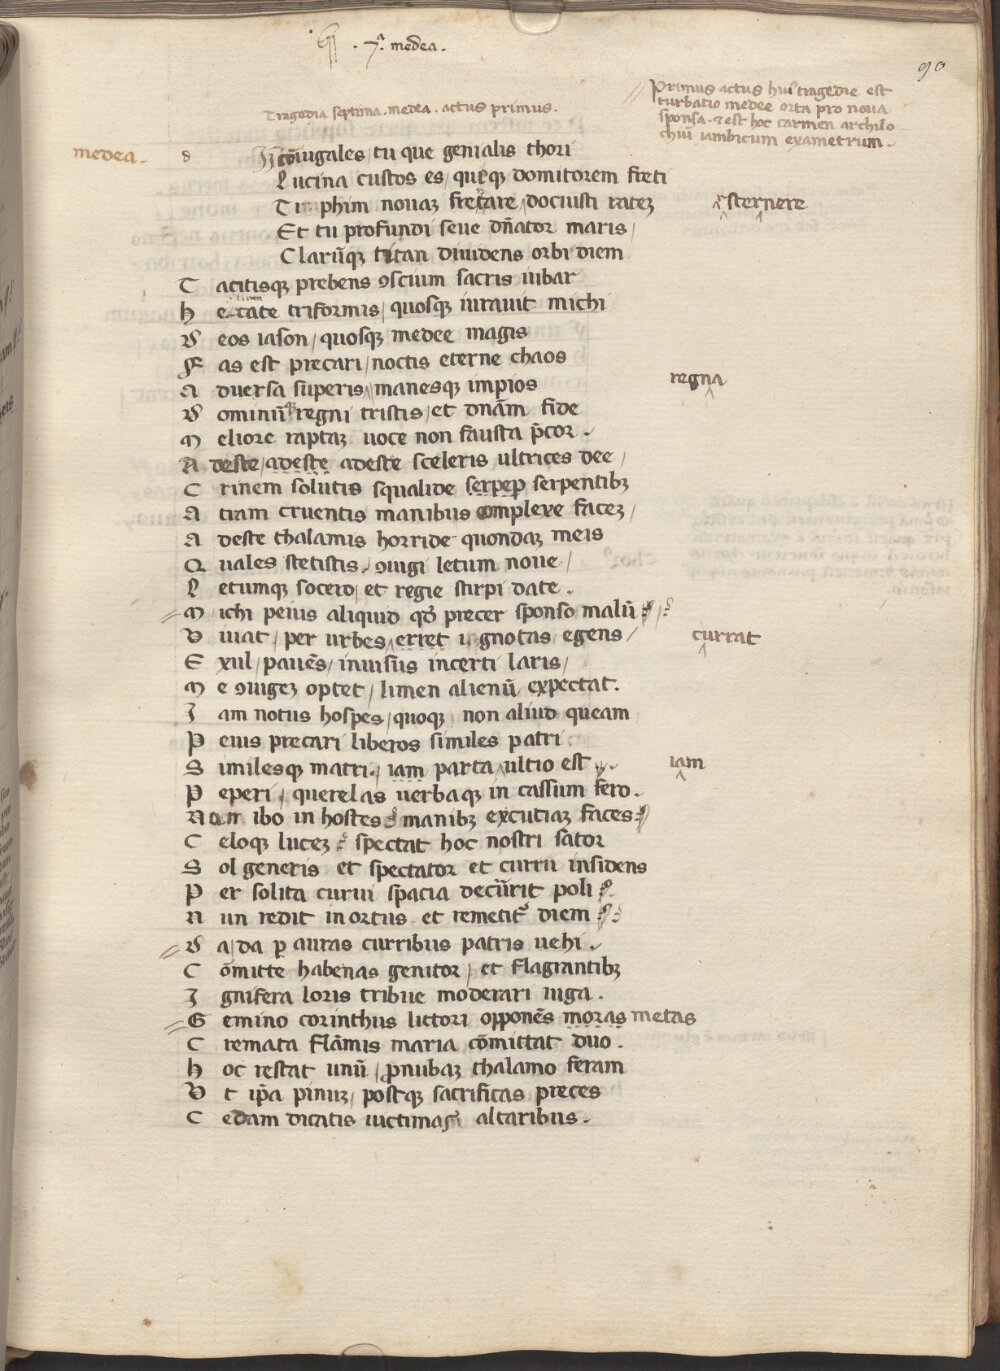 . 7.ª medea .
90
Tragedia septima . medea . actus primus .
Primus actus huiꝰ tragedie est
turbatio medee orta pro noua
sponsa . ⁊ est hoc carmen archilo
chuı iambicum exametrum .
medea . d Ij cōiugales / tu que genialis thori
Lucina custos es / queqꝫ domitorem freti
Tiphim nouaꝫ fretare docuisti rateꝫ sternere
Et tu profundi seue dn̄ator maris /
Clarūqꝫ titan diuidens orbi diem
T acitisqꝫ prebens ꝯscium sacris iubar
h ecate triformis / quosqꝫ iurauit michi
D eos iason / quosqꝫ medee magis
F as est precari / noctis eterne chaos
A duersa superis / manesqꝫ impios regna
D ominūqꝫ regni tristis / et dnām fide
M eliore raptaꝫ uoce non fausta p̄cor .
A deste / adeste adeste sceleris ultrices dee /
C rinem solutis squalide serpentibꝫ
A tram cruentis manibus complexe faceꝫ /
A deste thalamis horride quondaꝫ meis
Q uales stetistis . ꝯiugi letum noue /
L etumqꝫ socero / et regie stirpi date .
M ichi peius aliquid qđ precer sponso malū
V iuat / per urbes erret ignotas / egens / currat
E xul / pauēs / inuisus incerti laris /
M e ꝯiugeꝫ optet / limen alienū expectat .
I am notus hospes / quoqꝫ non aliud queam
P eius precari liberos similes patri .
S imilesqꝫ matri . iam parta ultio est . iam
P eperi / querelas uerbaqꝫ in cassum fero .
N on ibo in hostes manibꝫ excutiaꝫ faces
C eloqꝫ luceꝫ spectat hoc nostri sator
S ol generis et spectator et curru insidens
P er solita curui spacia decūrit poli
N un redit in ortus et remetitᷣ diem
D a / da ꝑ auras curribus patris uehi .
C ōmitte habenas genitor / et flagrantibꝫ
I gnifera loris tribue moderari iuga .
G emino corinthus littori opponēs moras metas
C remata flāmis maria cōmittat duo .
h oc restat unū / ꝓnubaꝫ thalamo feram
V t ip̄a pinuꝫ / postqꝫ sacrificas preces
C edam dicatis uictimas altaribus .